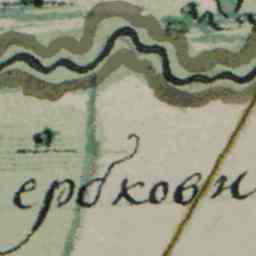 ербковн